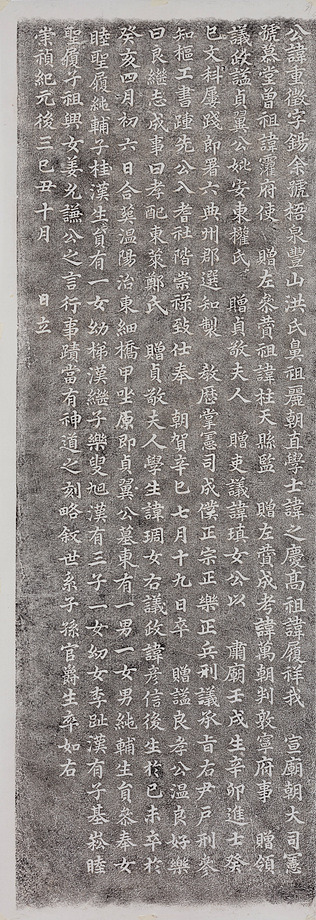 公諱重徵字錫余號梧泉豐山洪氏鼻祖麗朝直學士諱之慶高祖諱履祥我 宣廟朝大司憲
號慕堂曾祖諱霶府使 贈左參贊祖諱柱天縣監 贈左贊成考諱萬朝判敦寧府事 贈領
議政謚貞翼公妣安東權氏 贈貞敬夫人 贈吏議諱瑱女公以 肅廟壬戌生辛卯進士癸
巳文科屢踐郎署六典州郡選知製 敎歷掌憲司成僕正宗正樂正兵刑議承旨右尹戶刑參
知樞工書踵先公入耆社階崇祿致仕奉 朝賀辛巳七月十九日卒 贈謚良孝公温良好樂
曰良繼志成事曰孝配東萊鄭氏 贈貞敬夫人學生諱琱女右議政諱彥信後生於己未卒於
癸亥四月初六日合葬温陽治東細橋甲坐原即貞翼公墓東有一男一女男純輔生員參奉女
睦聖履純輔子桂漢生員有一女幼梯漢繼子樂叟旭漢有三子一女幼女李趾漢有子基崧睦
聖履子祖興女姜允謙公之言行事蹟當有神道之刻略叙世系子孫官爵生卒如右
崇禎紀元後三己丑十月 日立